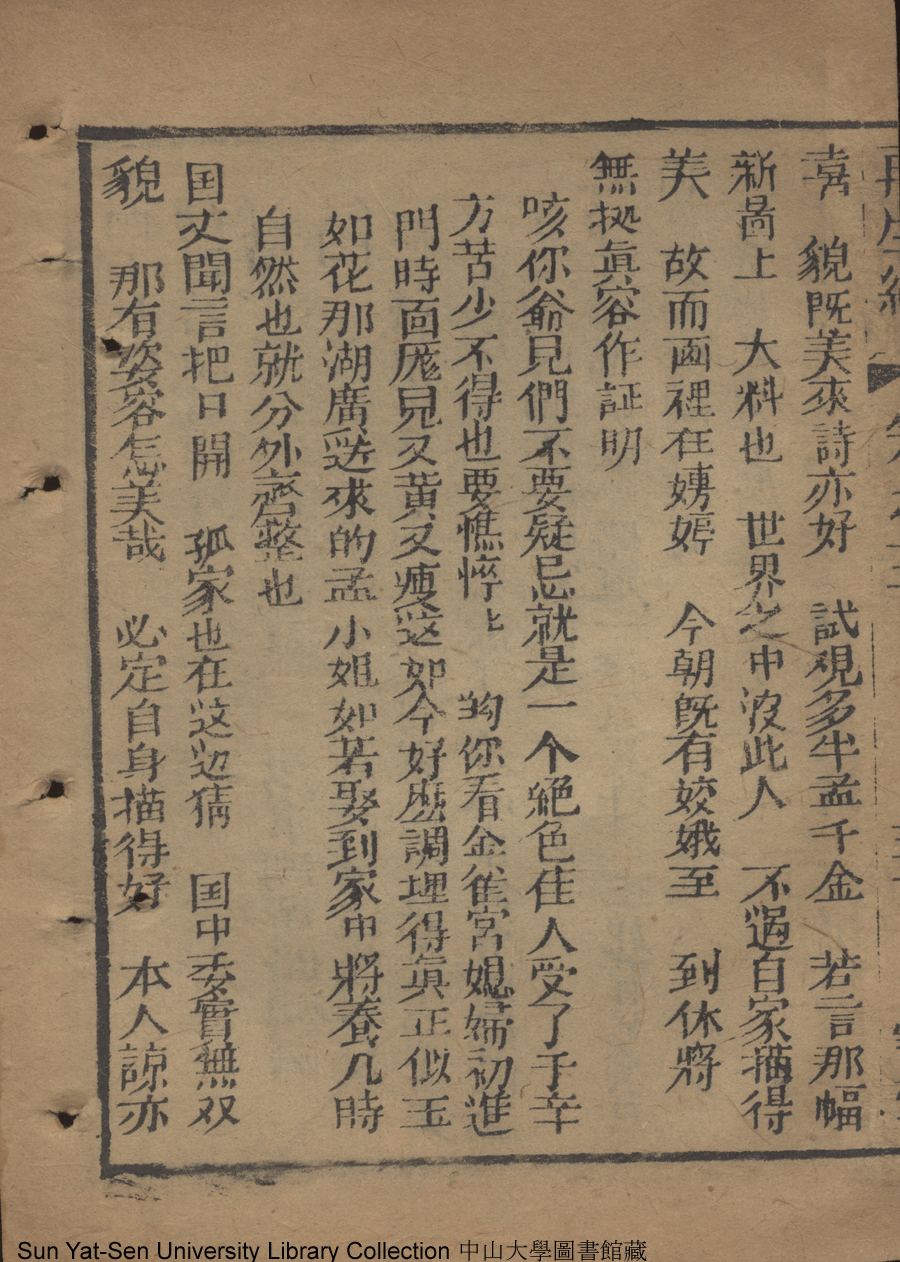 再生緣
喜　貌旣美來詩亦好　試观多半孟千金　若言那幅
新啚上　大料也　世界之中没此人　不過自家描得
美　故而画裡在娉婷　今朝旣有姣娥至　到休將
無拠眞容作証明
咳你爺兒們不要疑忌就是一个絕色佳人受了千辛
万苦少不得也要憔悴〻　的你看金雀宮媳婦初進
門時面厐兒又黄又瘦这如今好麽調理得眞正似玉
如花那湖廣送來的孟小姐如若娶到家中將養几時
自然也就分外齊整也
国丈聞言把口開　孤家也在这边猜　国中委實無双
貌　那有姿容怎美哉　必定自身描得好　本人諒亦
Sun Yat-Sen University Library Collection 中山大學圖書館藏